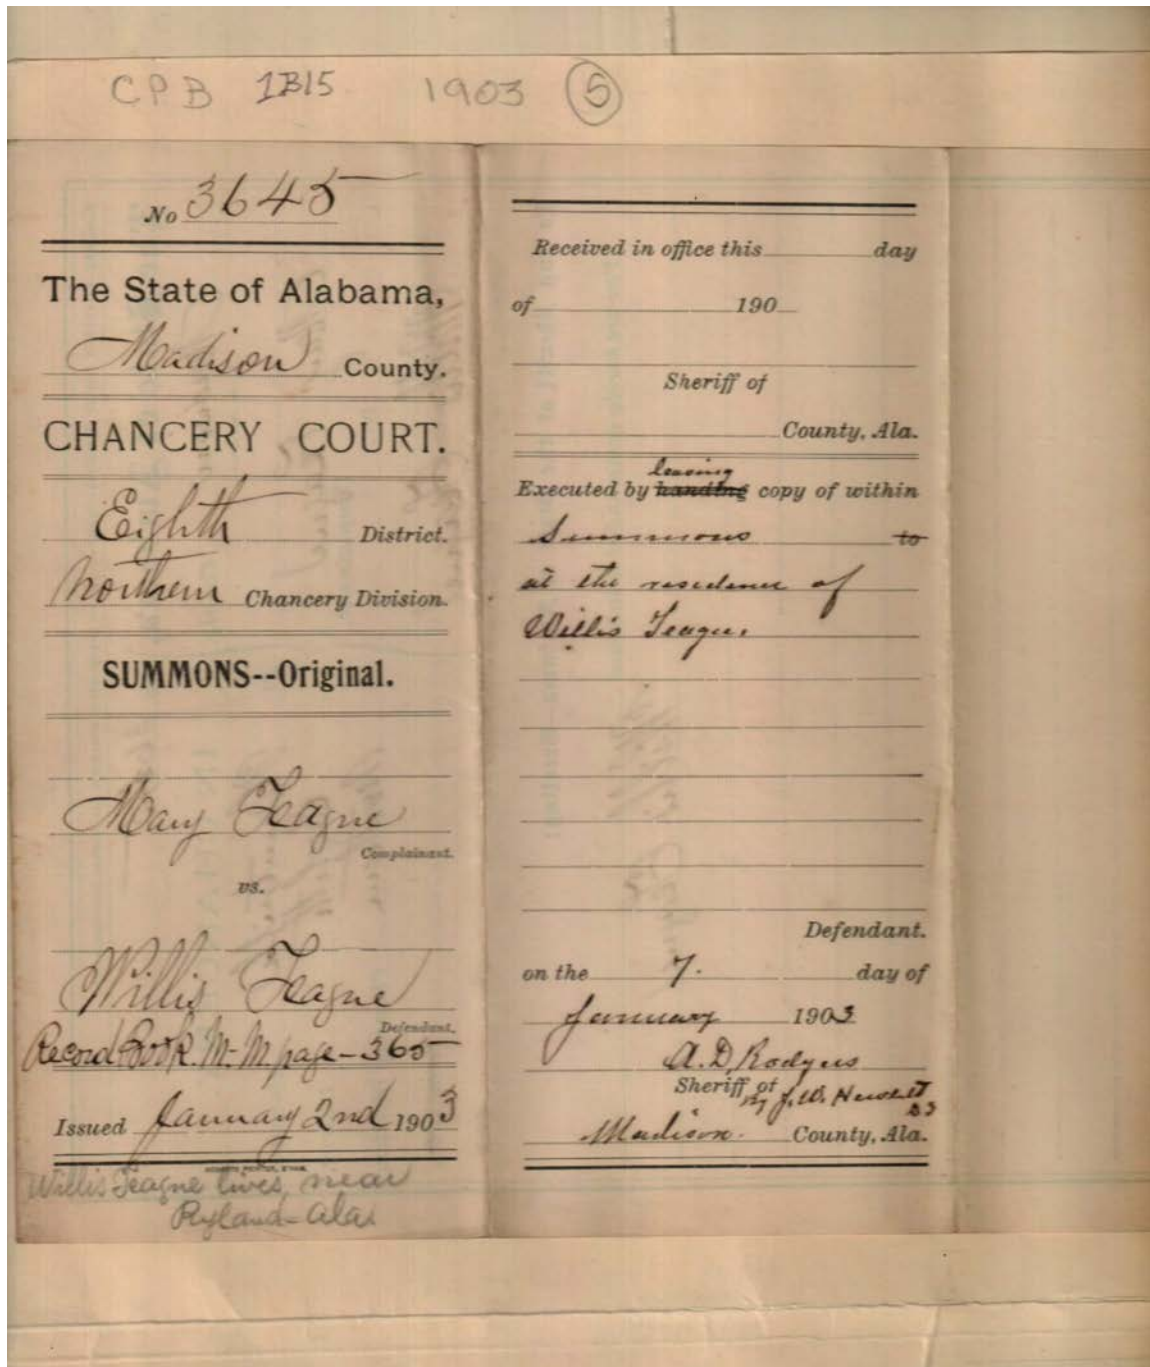 CPB 1B15 1903 5
No 3645
The State of Alabama,
Madison County.
CHANCERY COURT.
Eighth District.
Northern Chancery Division.
SUMMONS--Original.
Mary Teague
Complainant.
vs.
Willis Teague
Defendant.
Record Book M-M page-365
Issued January 2nd 1903
Willis Teague lives near
Ryland-Ala
Received in office this day
of 190
Sheriff of
County, Ala.
leaving
Executed by handing copy of within
Summons to
at the residence of
Willis Teague.
Defendant.
on the 7. day of
January 1903
A.D. Rodgers
Sheriff of
By J.W.
Madison County, Ala.